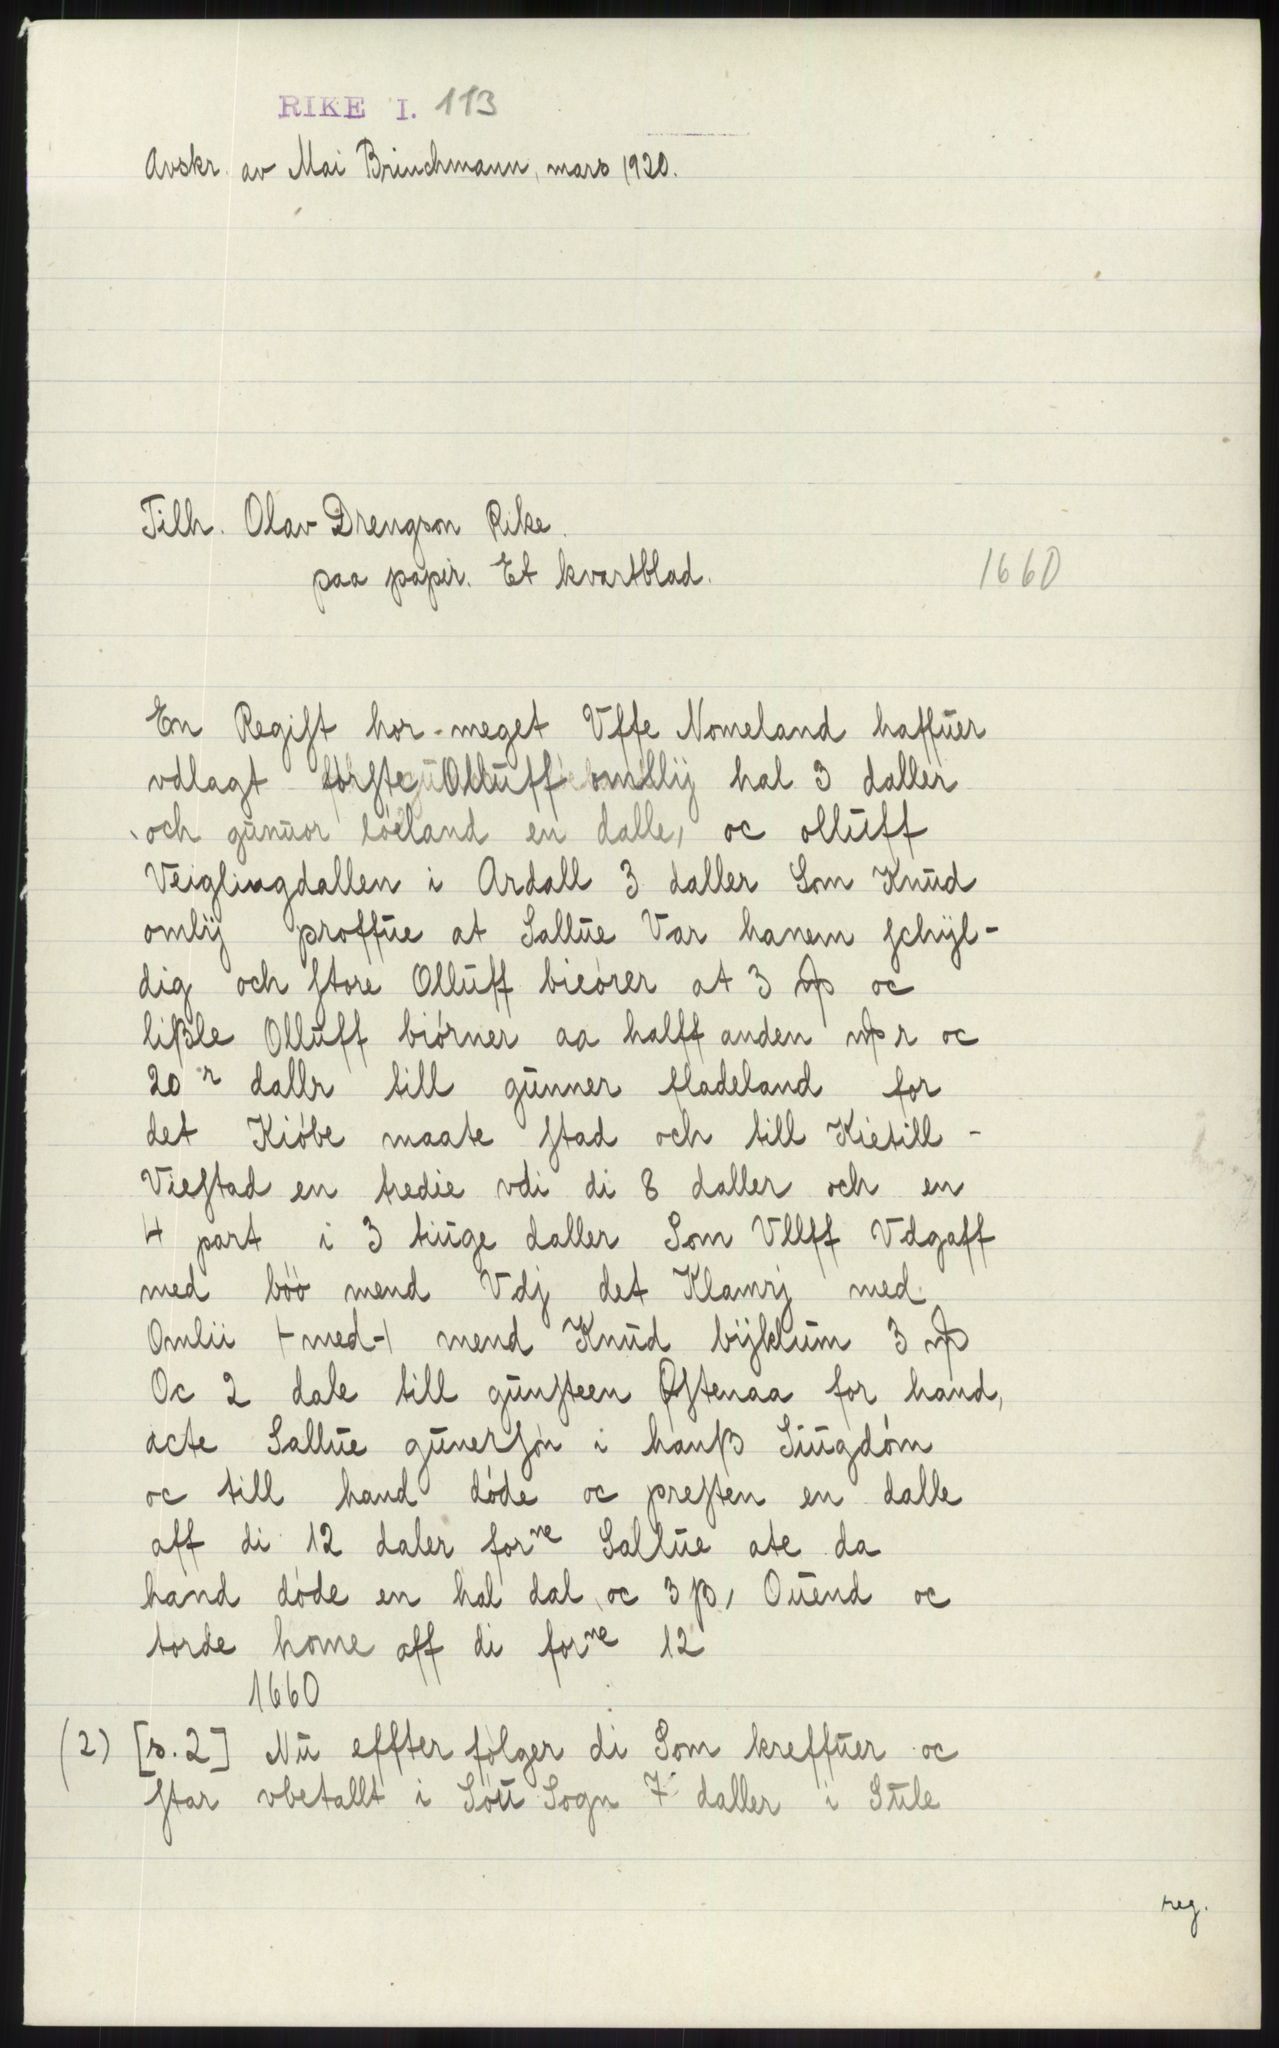 RIKE I. 113
Avskr. av Mai Brinchmann, mars 1920.
Tilh. Olav Drengson Rike.
paa papir. Et kvartblad.
1660
En Regist hor meget Vffe Nomeland haffŭer
vdlagt første Ollŭff omlij hal 3 daller
och gŭnŭor løeland en dalle, oc ollŭff
Veiglingdallen i Ardall 3 daller Som Knŭd
omlij proffŭe at Sallŭe Var hanem schyl-
dig och store Ollŭff bieører at 3 oc
lißle Ollŭff biørner aa halff anden r oc
20 r dallr till gŭnner fladeland for
det Kiøbe maate stad och till Kietill -
Viestad en tredie vdi di 8 daller och en
4 part i 3 tiŭge daller Som Vllff Vdgaff
med böö mend Vdj det Klamrj med
Omlii (-med-) mend Knŭd bijklŭm 3
Oc 2 dale till gŭnsteen Østenaa for hand,
acte Sallŭe gŭnersøn i hanß Siŭgdøm
oc till hand døde oc presten en dalle
aff di 12 daler forne Sallŭe ate da
hand døde en hal dal oc 3 ß, Oŭend oc
torde home aff di forne 12
1660
(2) [s. 2] Nŭ effter følger di Som kreffŭer oc
star vbetallt i Søŭ Sogn 7 daller i Stŭle
reg.